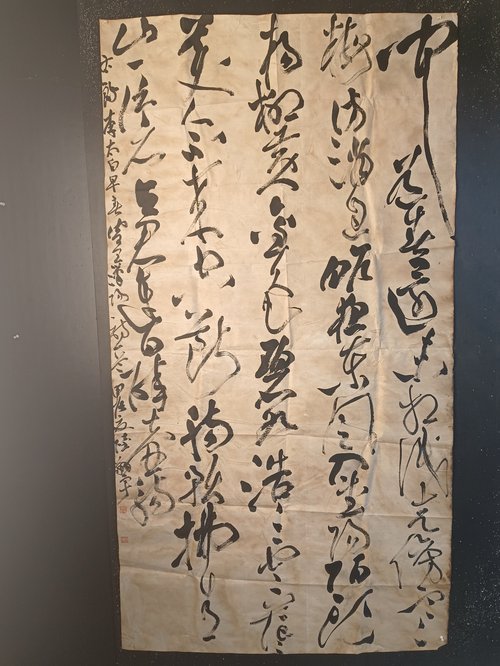 聞道春還未相識走傍寒
梅訪消息昨夜東風入武陽陌頭
楊柳黄金色碧水浩浩雲茫茫
美人不來空斷腸預拂青
山一片石與君連日醉壺觴
李太白早春寄王漢陽詩一首